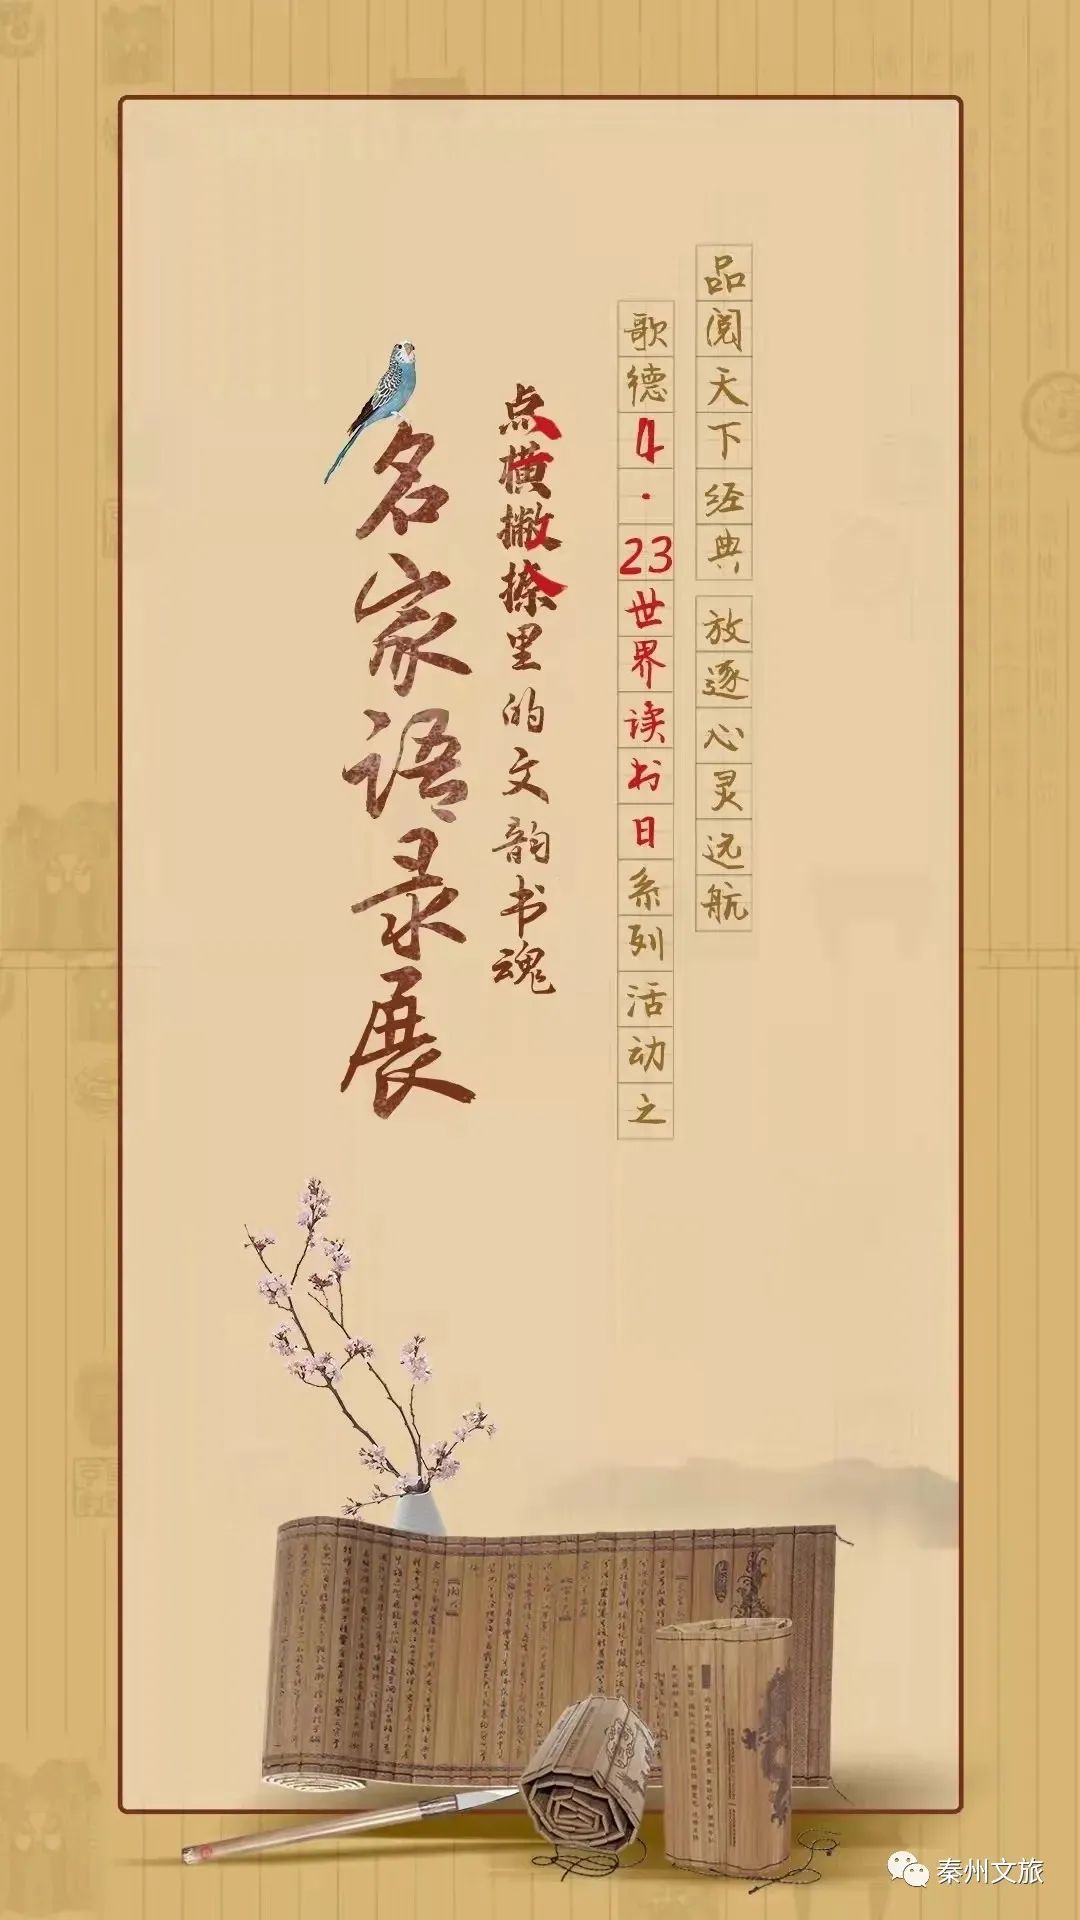 品阅天下经典 放逐心灵远航
歌德4·23世界读书日系列活动之
点横撇捺里的文韵书魂
名家语录展
秦州文旅